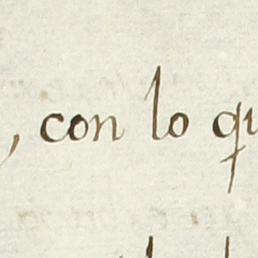 , con lo qu